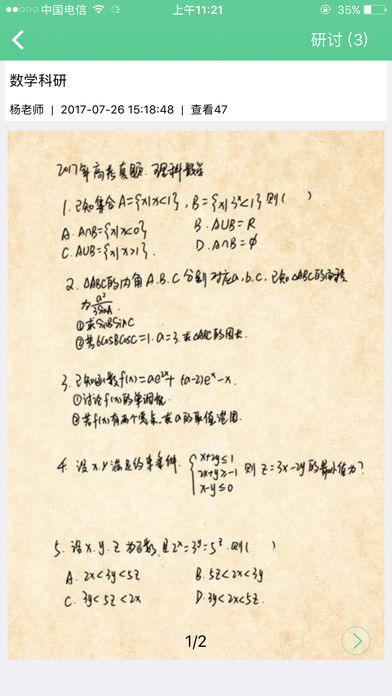 中国电信 上午11:21 35%
研讨 (3)
数学科研
杨老师 | 2017-07-26 15:18:48 | 查看47
2017年高考真题. 理科数学
1. 已知集合A={x|x<1}, B={x|3^x<1} 则( )
A. A∩B={x|x<0} B. A∪B=R
C. A∪B={x|x>1}. D. A∩B=∅
2. △ABC的内角A.B.C分别对应a.b.c. 已知△ABC的面积
为a²/3sinA
①求sinBsinC
②若6cosBcosC=1. a=3. 求△ABC的周长.
3. 已知函数f(x)=ae^2x+(a-2)e^x-x.
①讨论f(x)的单调性.
②若f(x)有两个零点. 求a的取值范围.
4. 设x.y满足约束条件. {x+2y≤1
2x+y≥-1
x-y≤0 则z=3x-2y的最小值为?
5. 设x.y.z为正数, 且2^x=3^y=5^z. 则( )
A. 2x<3y<5z B. 5z<2x<3y
C. 3y<5z<2x D. 3y<2x<5z.
1/2